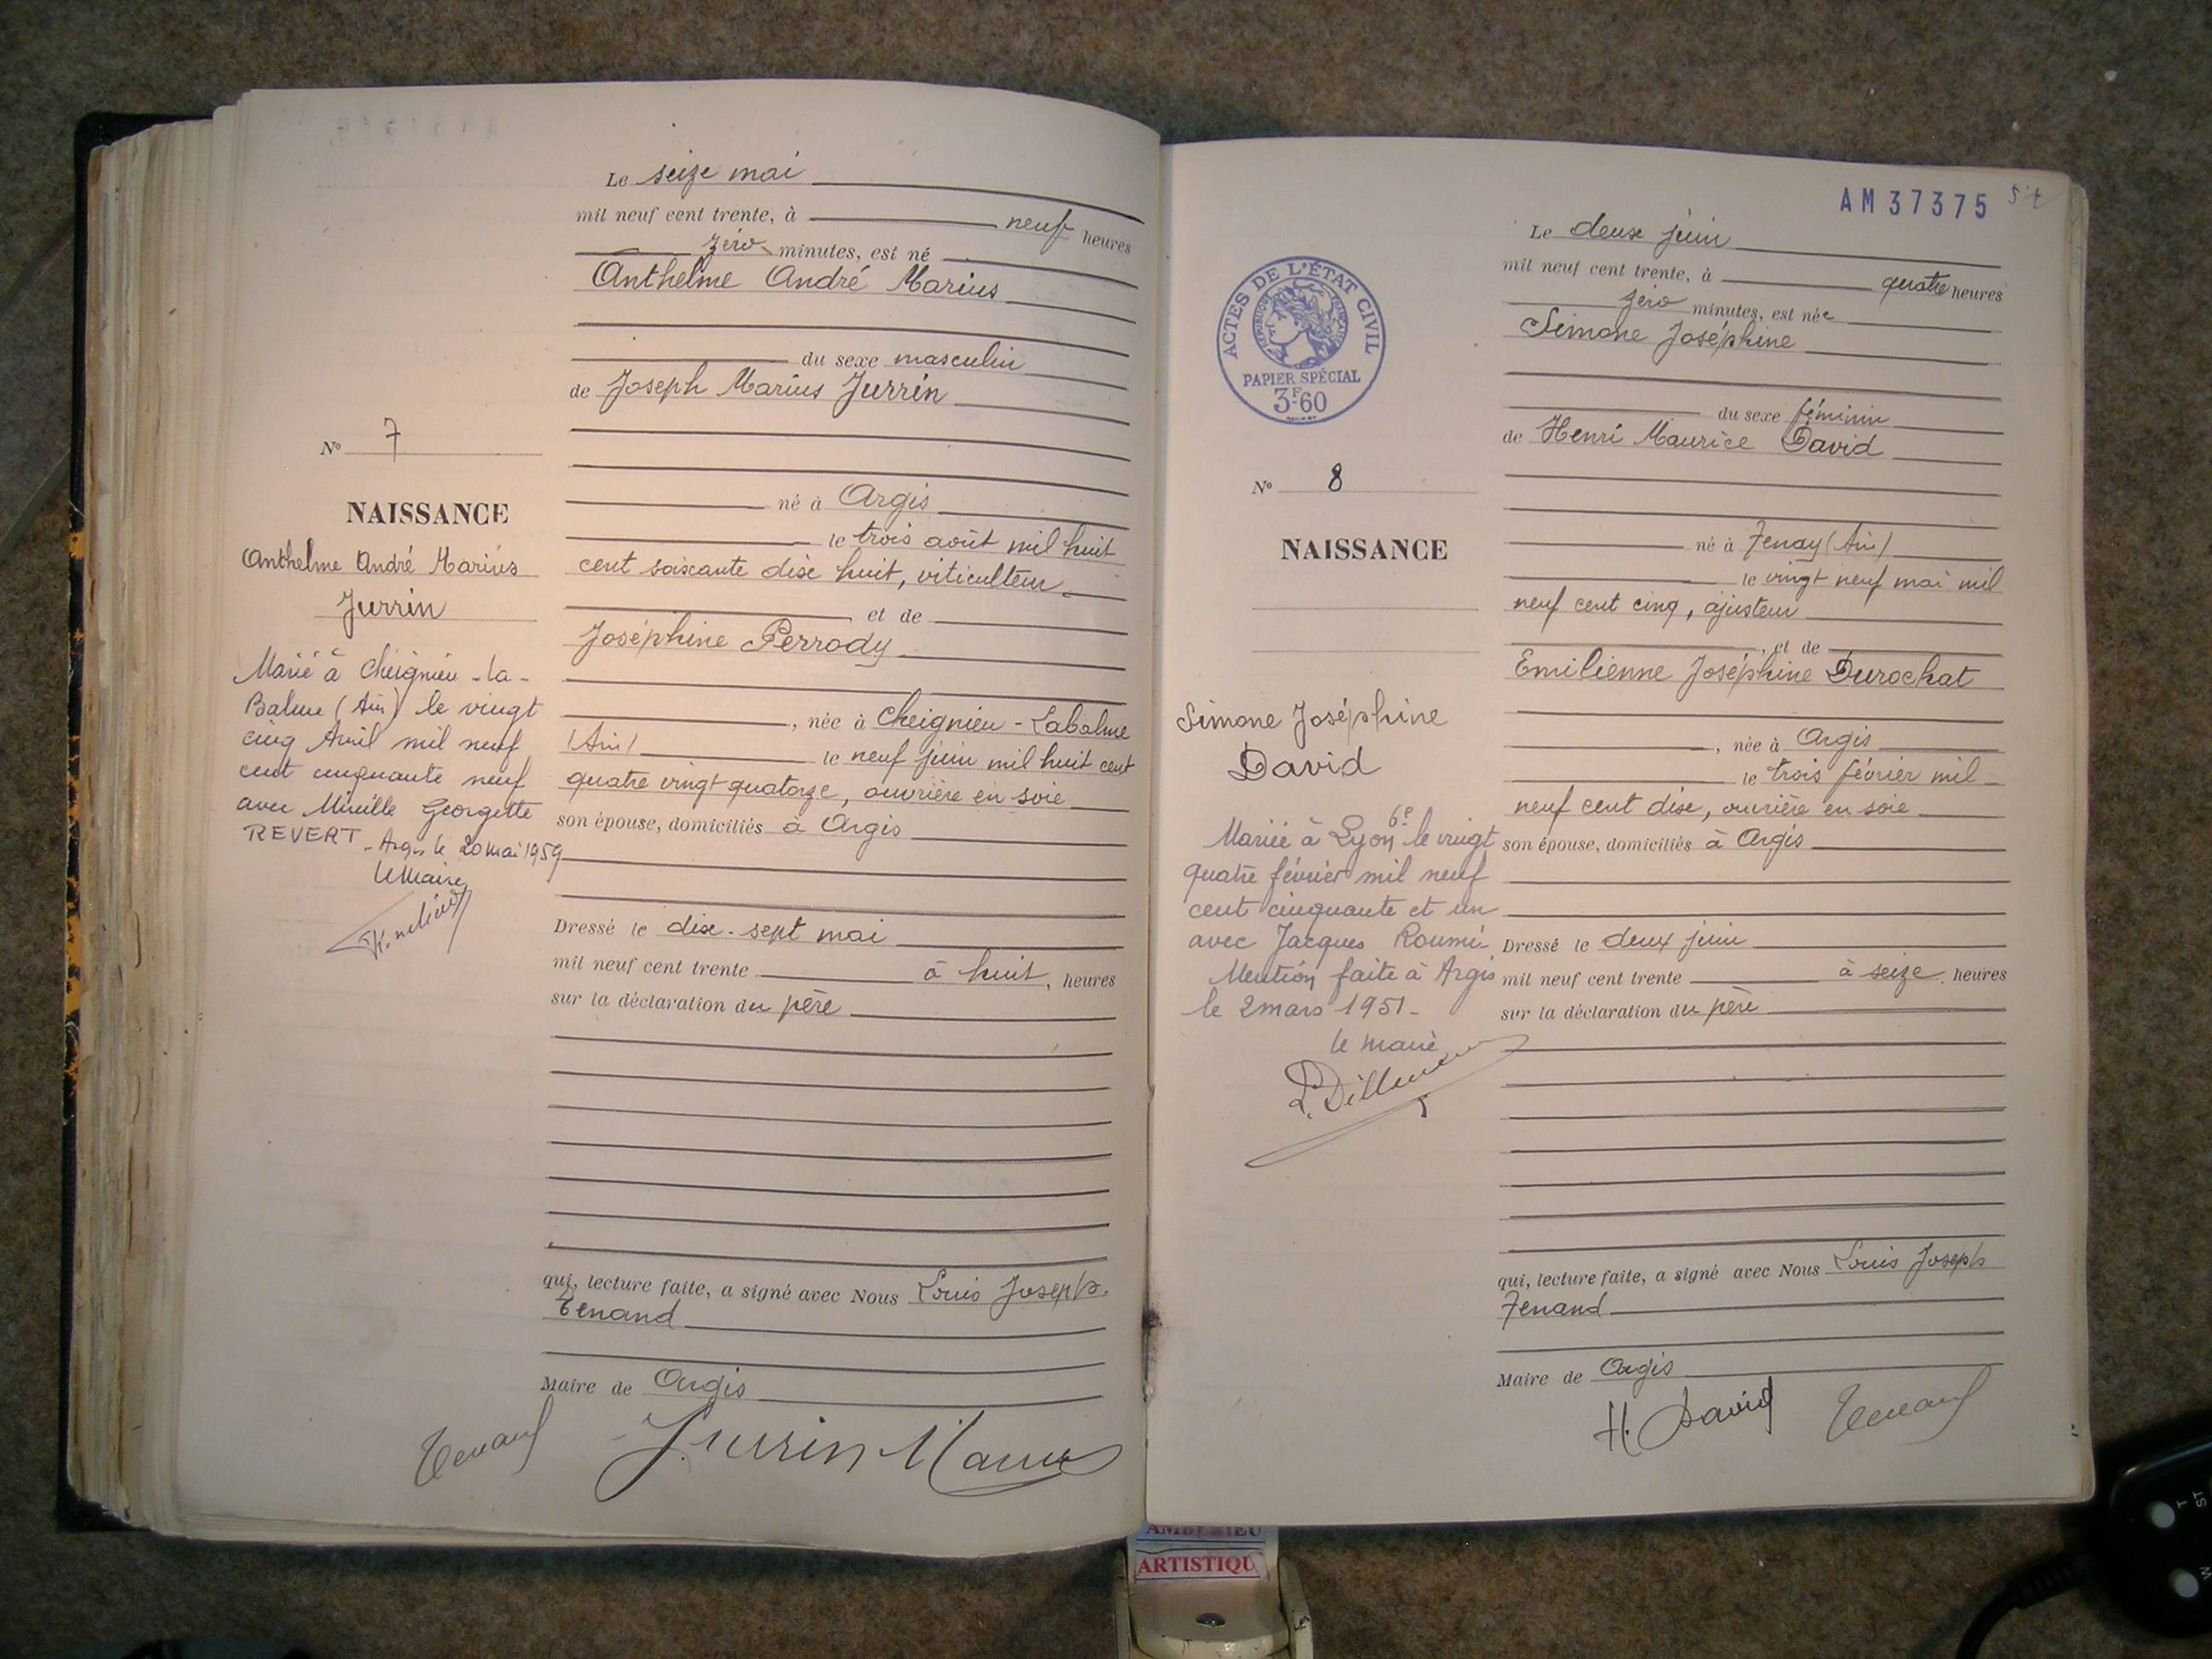 N° 7
NAISSANCE
Anthelme André Marius
Jurrin
Marié à Cheignieu-la-
Balme (Ain) le vingt
cinq Avril mil neuf
cent cinquante neuf
avec Mireille Georgette
REVERT - Argis le 20 mai 1959
le Maire
Le seize mai
mil neuf cent trente, à neuf heures
zéro minutes, est né
Anthelme André Marius
du sexe masculin
de Joseph Marius Jurrin
né à Argis
le trois août mil huit
cent soixante dix huit, viticulteur
et de
Joséphine Perrody
, née à Cheignieu-Labalme
(Ain) le neuf juin mil huit cent
quatre vingt quatorze, ouvrière en soie
son épouse, domiciliés à Argis
Dressé le dix-sept mai
mil neuf cent trente à huit, heures
sur la déclaration du père
qui, lecture faite, a signé avec Nous Louis Joseph
Tenand
Maire de Argis
Tenand Jurrin Marius
AM 37375
ACTES DE L'ÉTAT CIVIL
RÉPUBLIQUE FRANÇAISE
PAPIER SPÉCIAL
3F60
N° 8
NAISSANCE
Simone Joséphine
David
Mariée à Lyon 6e le vingt
quatre février mil neuf
cent cinquante et un
avec Jacques Roumi
Mention faite à Argis
le 2 mars 1951-
le maire
Le deux juin
mil neuf cent trente, à quatre heures
zéro minutes, est née
Simone Joséphine
du sexe féminin
de Henri Maurice David
né à Tenay (Ain)
le vingt neuf mai mil
neuf cent cinq, ajusteur
, et de
Emilienne Joséphine Durochat
, née à Argis
le trois février mil
neuf cent dix, ouvrière en soie
son épouse, domiciliés à Argis
Dressé le deux juin
mil neuf cent trente à seize, heures
sur la déclaration du père
qui, lecture faite, a signé avec Nous Louis Joseph
Tenand
Maire de Argis
H. David Tenand
ARTISTIQU